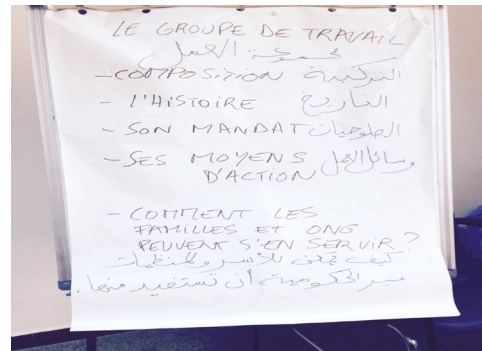 LE GROUPE DE TRAVAIL
مجموعة العمل
- COMPOSITION التركيبة
- L'HISTOIRE التاريخ
- SON MANDAT الصلوحيات
- SES MOYENS وسائل العمل
D'ACTION
- COMMENT LES
FAMILLES ET ONG
PEUVENT S'EN SERVIR?
كيف يمكن للأسر والمنظمات
غير الحكومية أن تستفيد منها.